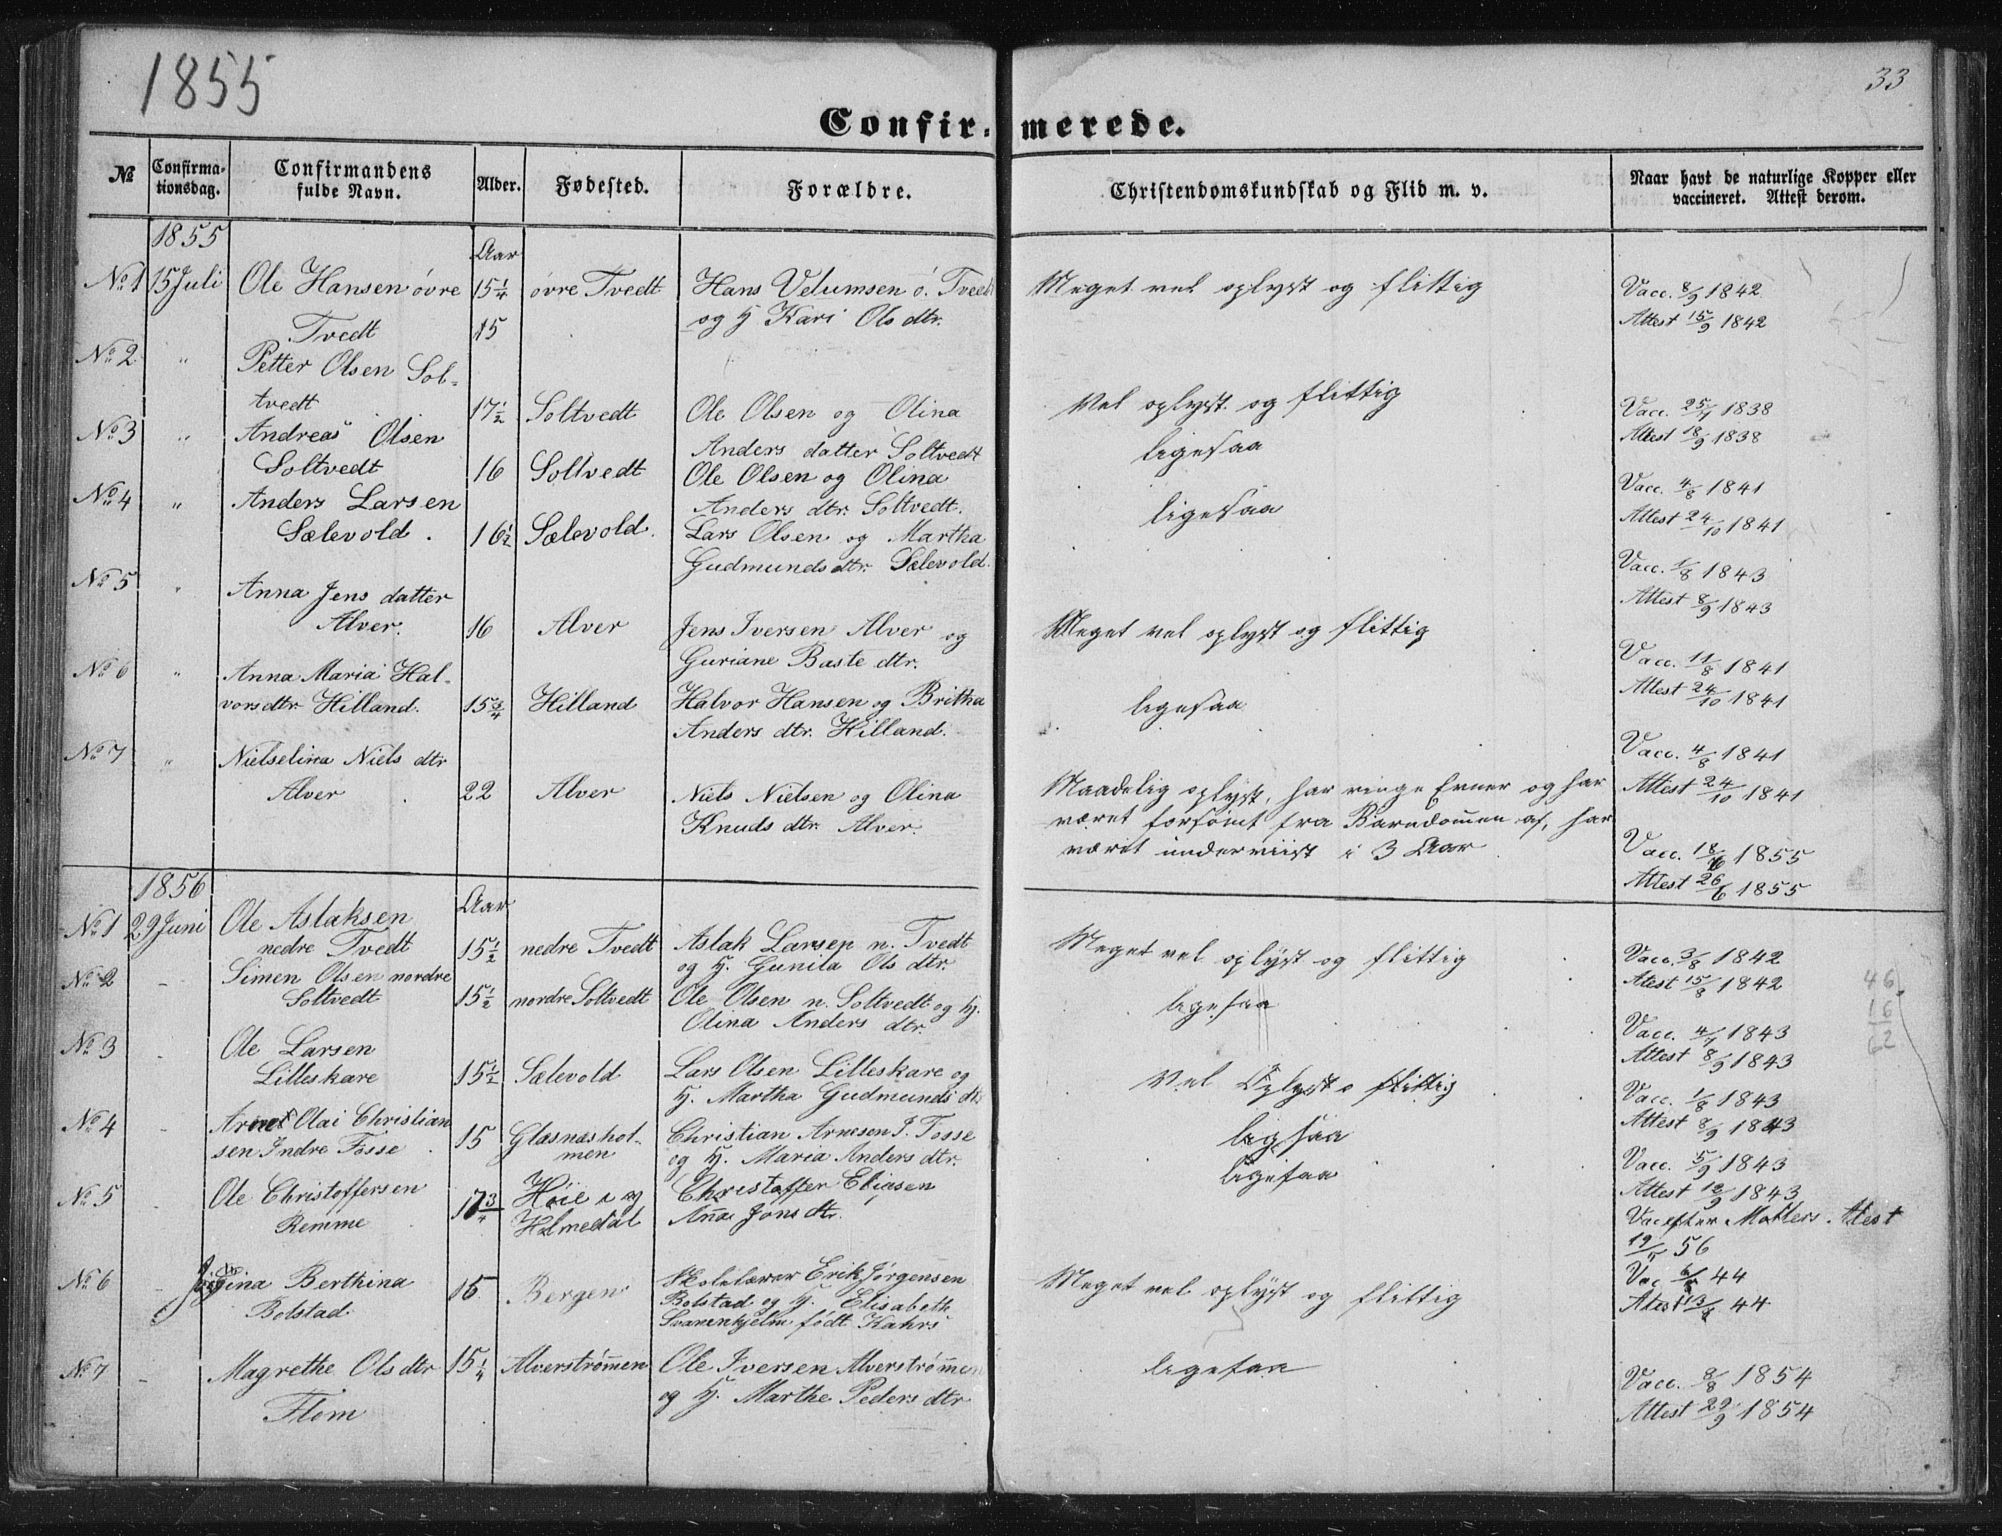 1855
33
Confir-merede.
№ Confirma-tionsdag. Confirmandens fulde Navn. Alder. Fødested. Forældre. Christendomskundskab og Flid m. v. Naar havt de naturlige Kopper eller vaccineret. Attest derom.
1855
Aar
No 1 15 Juli Ole Hansen øvre 15 1/4 øvre Tvedt Hans Velumsen ö. Tvedt Meget vel oplyst og flittig Vacc. 8/9 1842
Tvedt 15 og H Kari Ols dtr. Attest 15/9 1842
No 2 " Petter Olsen Sol-
tvedt 17 1/2 Soltvedt Ole Olsen og Olina Vel oplyst og flittig Vacc. 25/7 1838
Anders datter Soltvedt Attest 18/9 1838
No 3 " Andreas Olsen
Soltvedt 16 Soltvedt Ole Olsen og Olina ligesaa Vacc. 4/8 1841
Anders dtr. Soltvedt. Attest 24/10 1841
No 4 " Anders Larsen
Sælevold. 16 1/2 Sælevold. Lars Olsen og Martha ligesaa Vacc. 1/8 1843
Gudmunds dtr. Sælevold. Attest 8/9 1843
No 5 " Anna Jens datter
Alver. 16 Alver Jens Iversen Alver og Meget vel oplyst og flittig Vacc. 11/8 1841
Guriane Baste dtr. Attest 24/10 1841
No 6 " Anna Maria Hal-
vorsdtr Hilland. 15 3/4 Hilland Halvor Hansen og Britha ligesaa Vacc. 4/8 1841
Anders dtr. Hilland. Attest 24/10 1841
No 7 " Nielselina Niels dtr
Alver 22 Alver Niels Nielsen og Olina Maadelig oplyst, har ringe Evner og har
Knuds dtr. Alver. været forsömt fra Barndommen af, har Vacc. 18/6 1855
været underviist i 3 Aar Attest 26/6 1855
1856
Aar
No 1 29 Juni Ole Aslaksen
nedre Tvedt 15 1/2 nedre Tvedt Aslak Larsen n. Tvedt Meget vel oplyst og flittig Vacc. 3/8 1842
og H. Gunila Ols dtr. Atest 15/8 1842
No 2 - Simen Olsen nordre
Soltvedt 15 1/2 nordre Soltvedt Ole Olsen n. Soltvedt og H. ligesaa Vacc. 4/7 1843
Olina Anders dtr. Attest 8/9 1843
46
16
62
No 3 - Ole Larsen
Lilleskare 15 1/2 Sælevold Lars Olsen Lilleskare og Vel Oplyst o flittig Vacc. 1/8 1843
H. Martha Gudmunds dtr Attest 8/9 1843
No 4 - Olai Christian
sen Indre Fosse 15 Glasnæshol-men Christian Arnesen I. Fosse ligsaa Vacc. 5/9 1843
og H. Maria Anders dtr. Attest 18/9 1843
No 5 - Ole Christoffersen
Remme 17 3/4 Höie i Holmedal Christoffer Eliasen ligesaa Vac efter Mollers Atest
Anna Jons dtr. 19/5 56
No 6 - Berthina
Bolstad 15 Bergen Skolelærer Erik Jørgensen Meget vel oplyst og flittig Vac 44
Bolstad og H. Elisabeth Atest 44
Svanenhjelm født Kahrs
No 7 - Magrethe Ols dtr 15 1/4 Alverstrømmen Ole Iversen Alverstrømmen ligesaa Vacc. 8/8 1854
Flom og H. Marthe Peders dtr Attest 29/9 1854